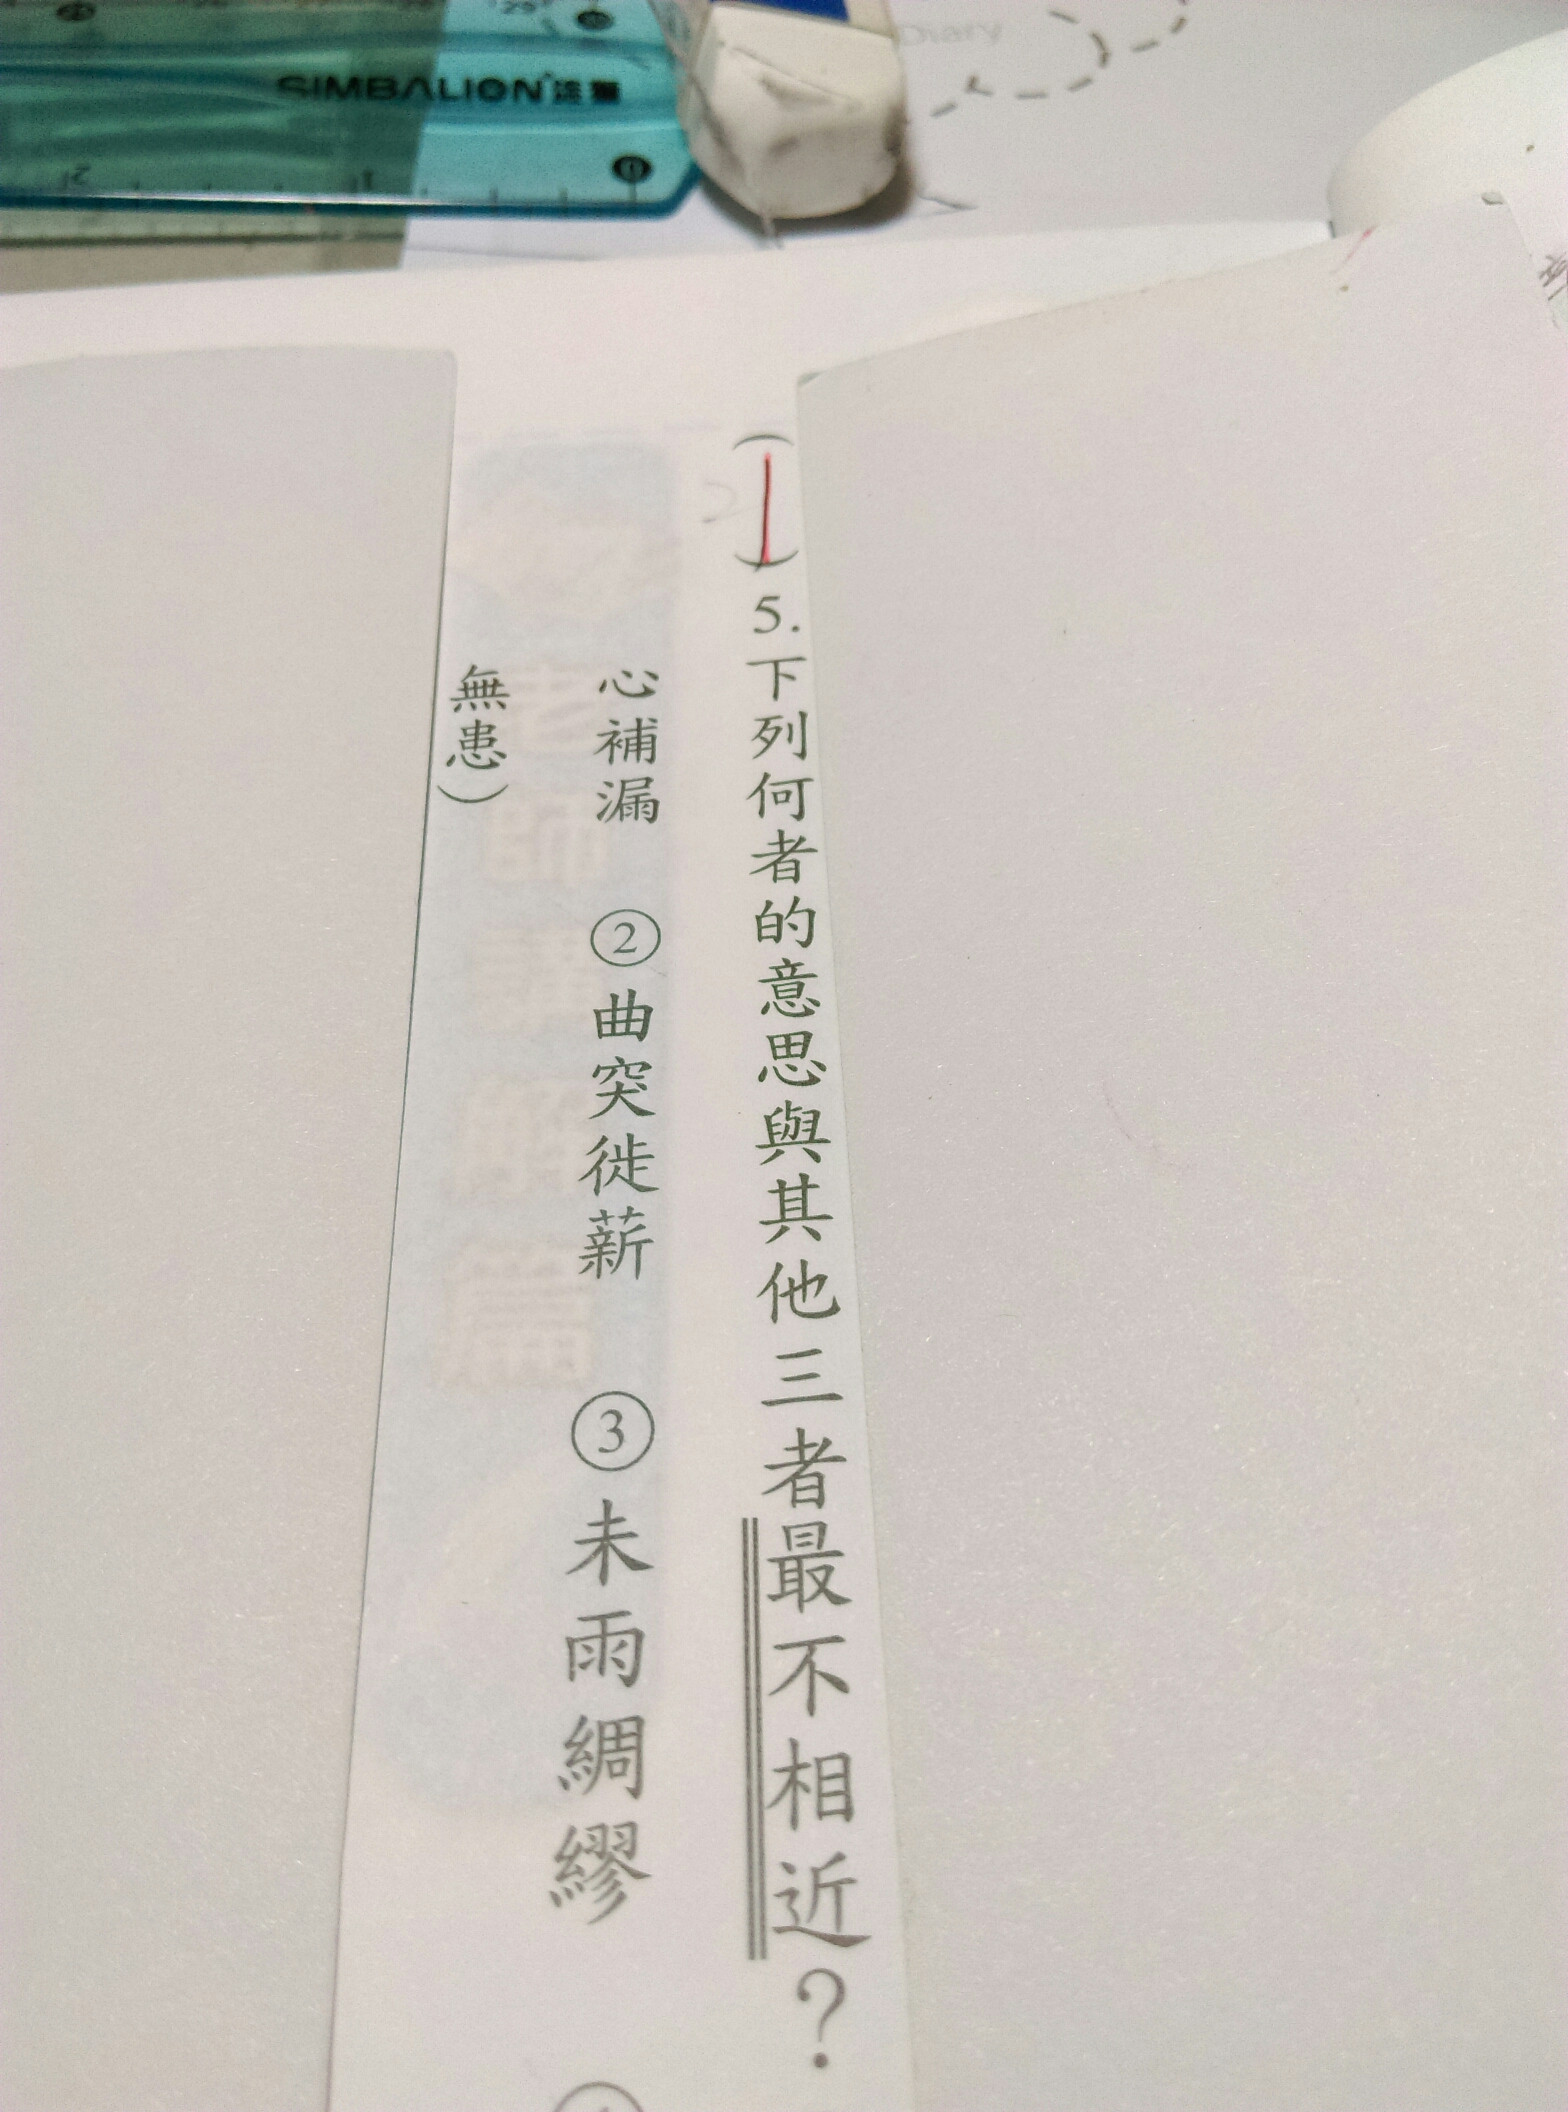 SIMBALION
2 1 0
Diary
(1)5.下列何者的意思與其他三者最不相近？
心補漏 ②曲突徙薪 ③未雨綢繆
無患）